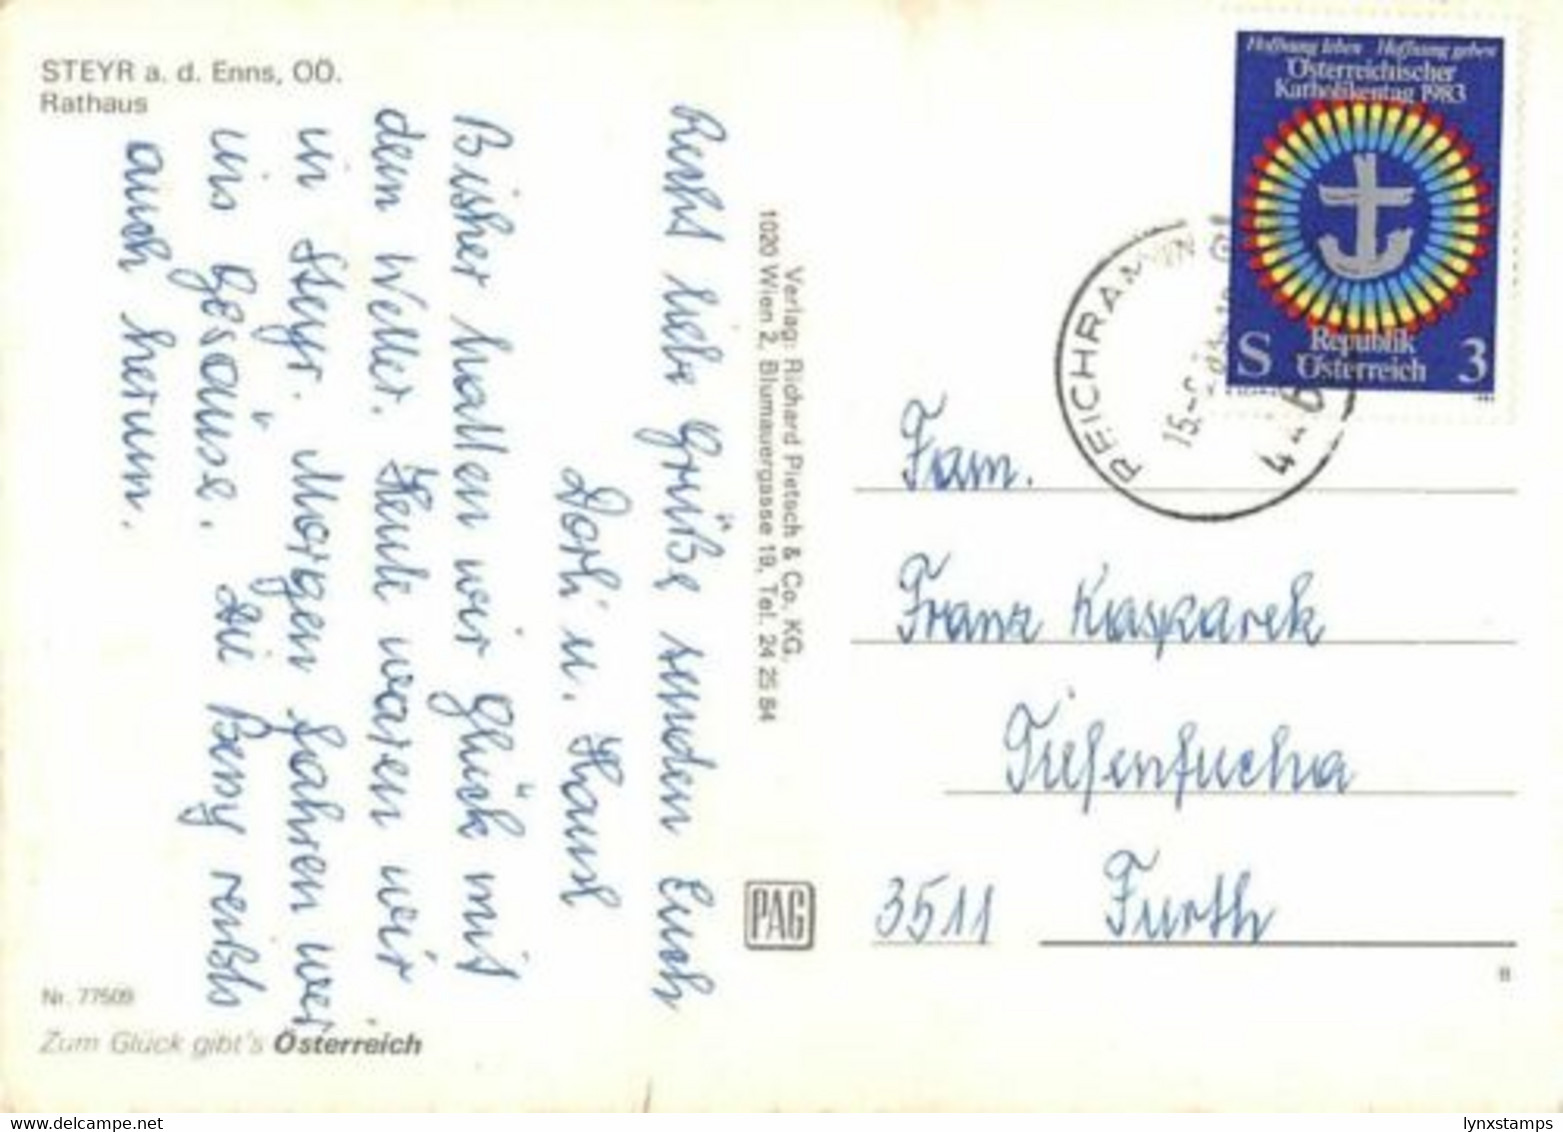 STEYR a. d. Enns, OÖ.
Rathaus
Recht liebe Grüße senden Euch
Dorli u. Hansl
Bisher hatten wir Glück mit
dem Wetter. Heute waren wir
in Steyr. Morgen fahren wir
ins Gesäuse. Die Berge
auch herum.
Verlag: Richard Pietsch & Co. KG.
1020 Wien 2, Blumauergasse 19, Tel. 24 25 84
PAG
Nr. 77509
Zum Glück gibt's Österreich
Hoffnung leben Hoffnung geben
Österreichischer
Katholikentag 1983
Republik
S Österreich 3
REICHRAMING
15.
44
Fam.
Franz Kasparek
Tiefenfucha
3511 Furth
8
lynxstamps